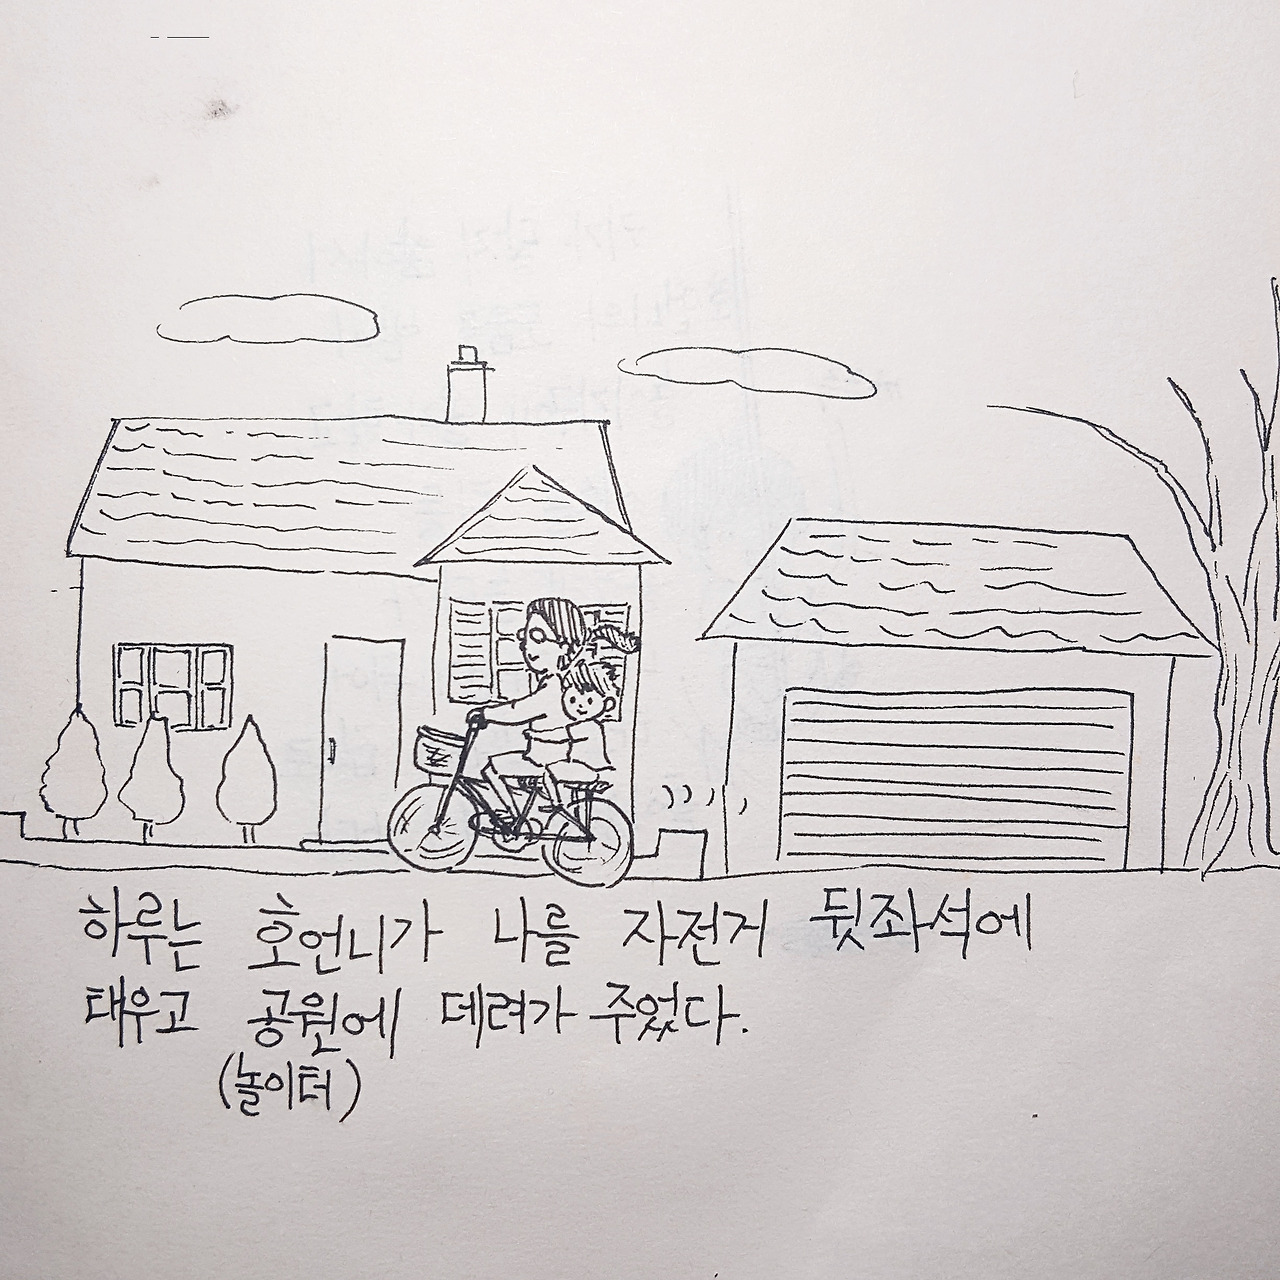 하루는 호언니가 나를 자전거 뒷좌석에
태우고 공원에 데려가 주었다.
(놀이터)